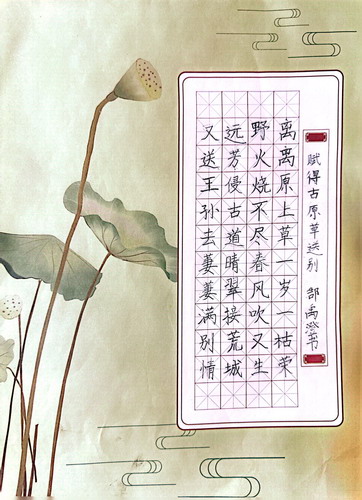 赋得古原草送别 禹澄书
离离原上草一岁一枯荣
野火烧不尽春风吹又生
远芳侵古道晴翠接荒城
又送王孙去萋萋满别情